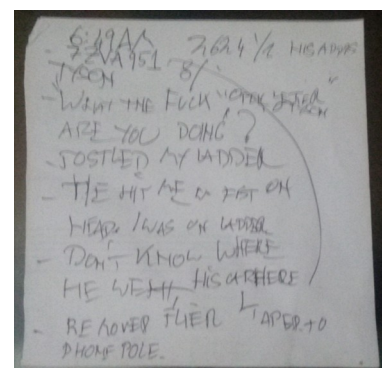 6:49AM 2624 1/2 HIS ADDRS
7ZVA951
- WHAT THE FUCK "
ARE YOU DOING?
- JOSTLED MY LADDER
- HE HIT ME FIST ON
HEAD. I WAS ON LADDER
- DON'T KNOW WHERE
HE WENT, HIS CAR HERE
- REMOVED FLIER TAPED TO
PHONE POLE.